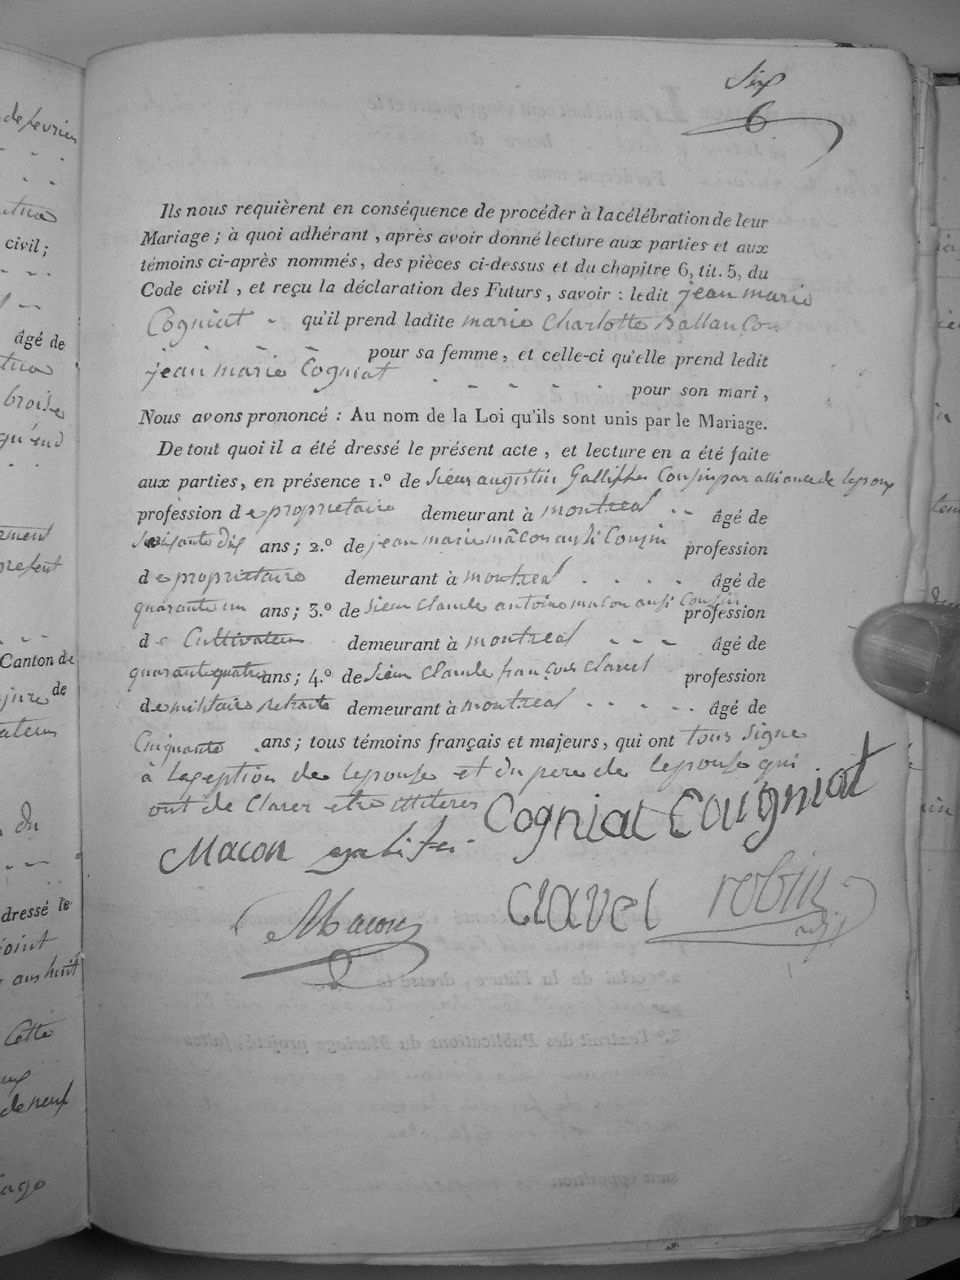 de fevrier
civil;
âgé de
Canton de
dressé le
Cette
Six
6
Ils nous requièrent en conséquence de procéder à la célébration de leur
Mariage ; à quoi adhérant , après avoir donné lecture aux parties et aux
témoins ci-après nommés, des pièces ci-dessus et du chapitre 6, tit. 5, du
Code civil , et reçu la déclaration des Futurs , savoir : ledit jean marie
Cogniat - qu'il prend ladite marie Charlotte Ballancon
pour sa femme , et celle-ci qu'elle prend ledit
jean marie Cogniat - - - - - - pour son mari ,
Nous avons prononcé : Au nom de la Loi qu'ils sont unis par le Mariage.
De tout quoi il a été dressé le présent acte , et lecture en a été faite
aux parties, en présence 1.º de sieur augistin Galliffet Cousin par alliance de lepoux
profession de propriétaire demeurant à montreal - - âgé de
soixante dix ans ; 2.º de jean marie mâcon aussi Cousin profession
de propriétaire demeurant à montreal - - - - âgé de
quarante un ans ; 3.º de sieur claude antoine macon aussi Cousin profession
de Cultivateur demeurant à montreal - - - âgé de
quarante quatre ans ; 4.º de sieur Claude françois Clavel profession
de militaire retraite demeurant à montreal - - - - - âgé de
Cinquante . ans ; tous témoins français et majeurs, qui ont tous signe
à lexseption de lepouse et du pere de lepouse qui
ont de Clarer etre illiteres
Cogniat Cougniat
Macon galifei
Macon
Clavel robin
adj